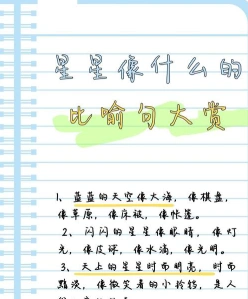 星星像什么的
比喻句大赏
1、蓝蓝的天空像大海，像棋盘，
像草原，像床被，像帐莲。
2、闪闪的星星像眼睛，像灯
光，像皮球，像水滴，像光明。
3、天上的星星时而明亮，时而
黯淡，像微笑着的小铃铛，是人